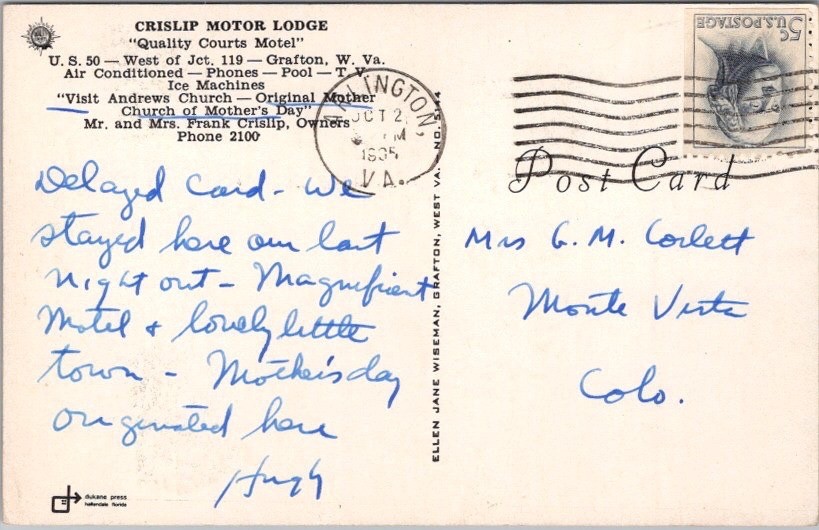 CRISLIP MOTOR LODGE
"Quality Courts Motel"
U. S. 50 — West of Jct. 119 — Grafton, W. Va.
Air Conditioned — Phones — Pool — T. V.
Ice Machines
"Visit Andrews Church — Original Mother
Church of Mother's Day"
Mr. and Mrs. Frank Crislip, Owners
Phone 2100
Delayed Card - We
stayed here our last
night out - Magnificent
Motel & lovely little
town - Mother's day
originated here
Hugh
dukane press
hallandale florida
ELLEN JANE WISEMAN, GRAFTON, WEST VA.
ARLINGTON,
OCT 2
M
1965
VA.
5c
U.S. POSTAGE
Post Card
Mrs G. M. Corlett
Monte Vista
Colo.